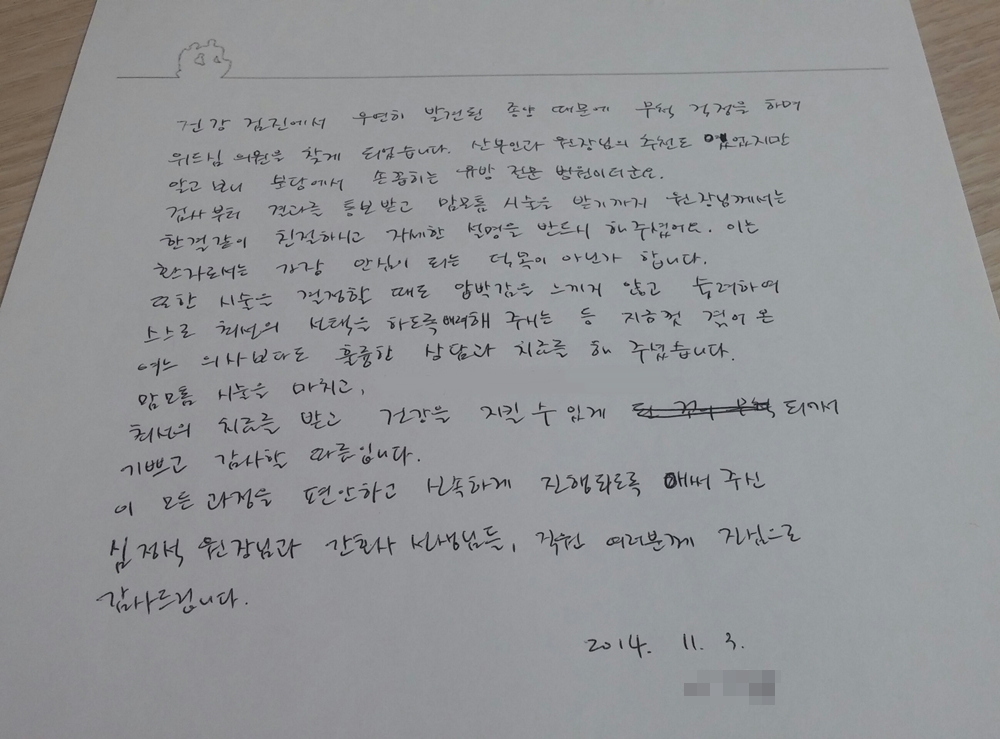 건강 검진에서 우연히 발견된 종양 때문에 무척 걱정을 하며
위드심 의원을 찾게 되었습니다. 산부인과 원장님의 추천도 있었지만
알고 보니 분당에서 손꼽히는 유방 전문 병원이더군요.
검사부터 결과를 통보받고 맘모톰 시술을 받기까지 원장님께서는
한결같이 친절하시고 자세한 설명을 반드시 해주셨어요. 이는
환자로서는 가장 안심이 되는 덕목이 아닌가 합니다.
또한 시술을 결정할 때도 압박감을 느끼게 않고 숙려하여
스스로 최선의 선택을 하도록 배려해 주시는 등 지금껏 겪어 온
여느 의사보다도 훌륭한 상담과 치료를 해 주셨습니다.
맘모톰 시술을 마치고,
최선의 치료를 받고 건강을 지킬 수 있게 되어서
기쁘고 감사할 따름입니다.
이 모든 과정을 편안하고 신속하게 진행되도록 애써 주신
심정석 원장님과 간호사 선생님들, 직원 여러분께 진심으로
감사드립니다.
2014. 11. 3.